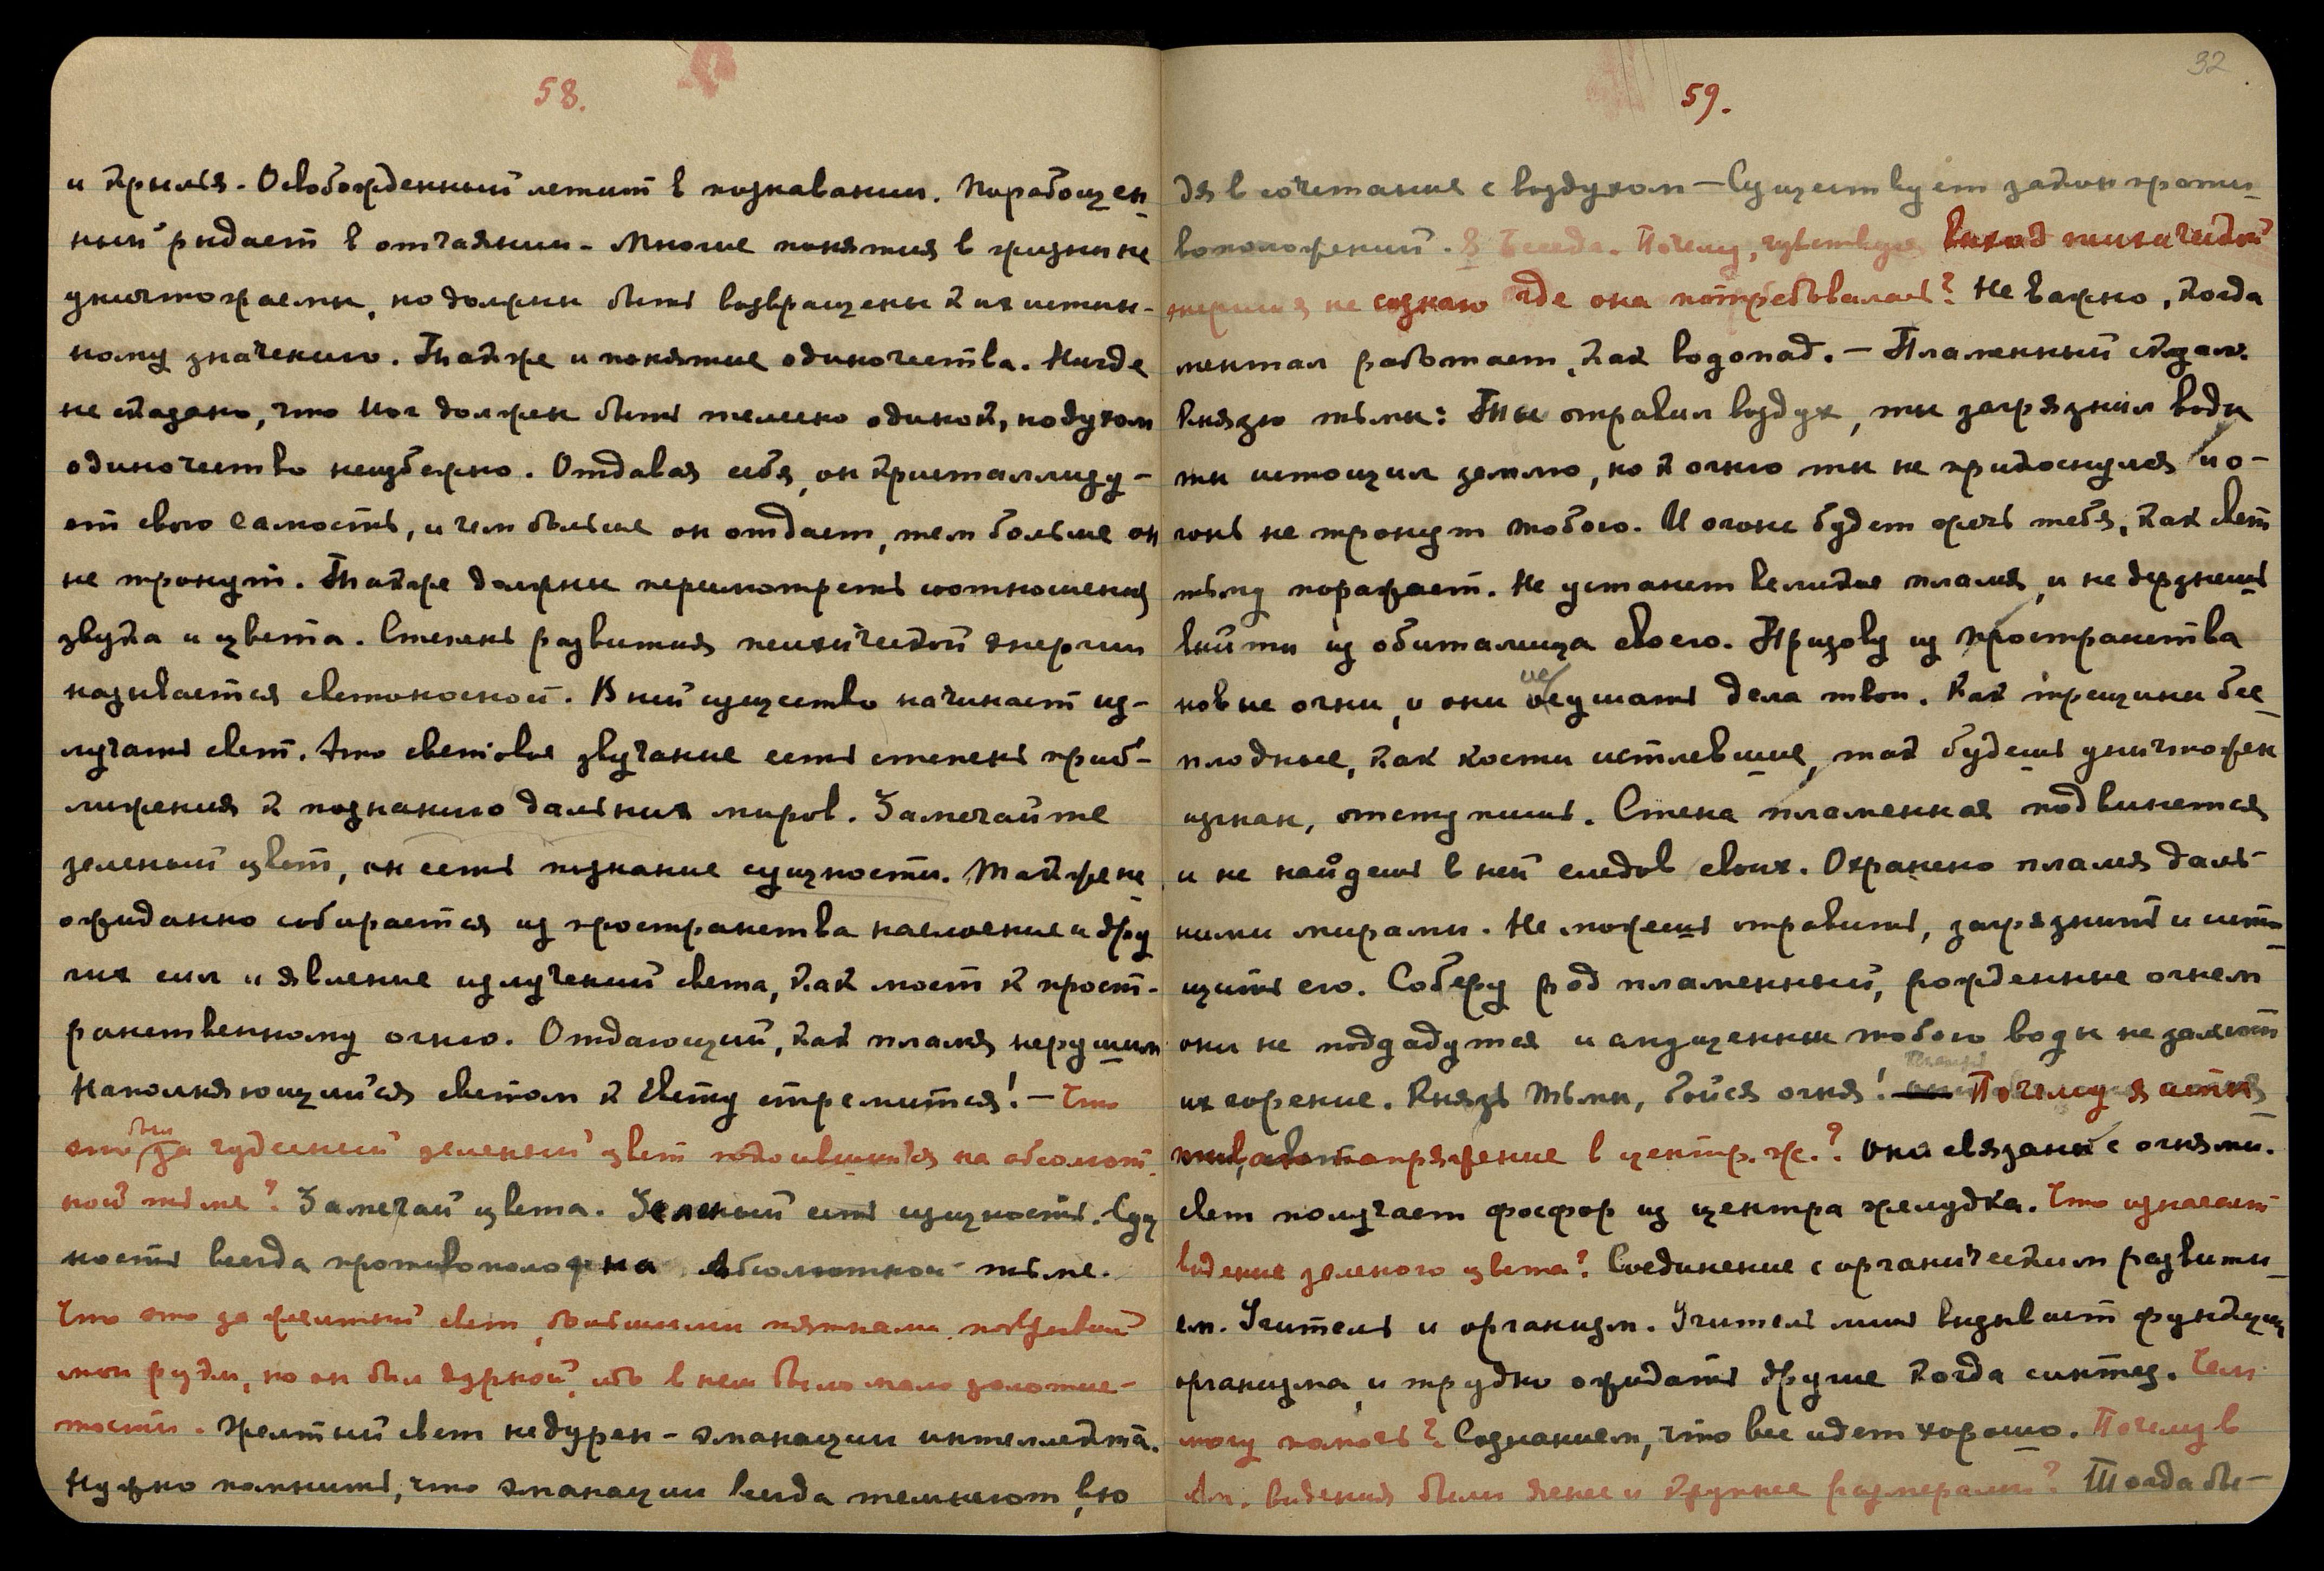 58.
и крылья. Освобожденный летит в познавании. Порабощен
ный рыдает в отчаянии. Многие понятия в жизни не
уничтожаемы, но должны быть возвращены к их истин-
ному значению. Также и понятие одиночества. Нигде
не сказано, что Иог должен быть телесно одинок, но духом
одиночество неизбежно. Отдавая себя, он кристаллизу-
ет свою самость, и чем больше он отдает, тем больше он
не тронут. Также должны пересмотреть соотношения
звука и цвета. Степень развития психической энергии
называется светоносной. В ней существо начинает из-
лучать свет. Это световое звучание есть степень приб-
лижения к познанию дальних миров. Замечайте
зеленый цвет, он есть познание сущности. Также не
ожиданно собирается из пространства наслоение и дру
гих сил и явление излучений света, как мост к прост-
ранственному огню. Отдающий, как пламя нерушим
Наполняющийся светом к Свету стремится! — Что
это был за чудесный зеленый цвет на абсолют
ной тьме? Замечай цвета. Зеленый есть сущность. Сущ
ность всегда противоположна абсолютной тьме.
Что это за желтый свет, большими пятнами
мои руки, но он был дурной, ибо в нем было мало золотис-
тости. Желтый свет не дурен - эманации интеллекта.
Нужно помнить, что эманации всегда темнеют, вхо
32
59.
дя в сочетание с воздухом — Существует закон проти
воположений. 8 Беседа. Почему, чувствуя выход психической
энергии не сознаю где она потребовалась? Не важно, когда
ментал работает, как водопад. — Пламенный сказал
Князю тьмы: Ты отравил воздух, ты загрязнил воды
ты истощил землю, но к огню ты не прикоснулся и о-
гонь не тронут тобою. И огонь будет жечь тебя, как свет
тьму поражает. Не устанет великое пламя, и не дерзнешь
выйти из обиталища своего. Призову из пространства
новые огни, и они иссушат дела твои. Как трещины бес
плодные, как кости истлевшие, так будешь уничтожен
изгнан, отступишь. Стена пламенная подвинется
и не найдешь в ней следов своих. Охранено пламя даль-
ними мирами. Не можешь отравить, загрязнить и исто
щить его. Соберу род пламенный, рожденные огнем
они не поддадутся и спущенные тобою воды не зальют
их горение. Князь тьмы, бойся огня! Почему я
напряжение в центр. ж.? Они связаны с огнями.
Свет получает фосфор из центра желудка. Что означает
видение зеленого цвета? Соединение с органическим развити
ем. Учитель и организм. Учитель лишь вызывает функции
организма, и трудно ожидать другие когда синтез. Чем
могу помочь? Сознанием, что все идет хорошо. Почему в
Ам. видения были яснее и крупнее размерами? Тогда бы-